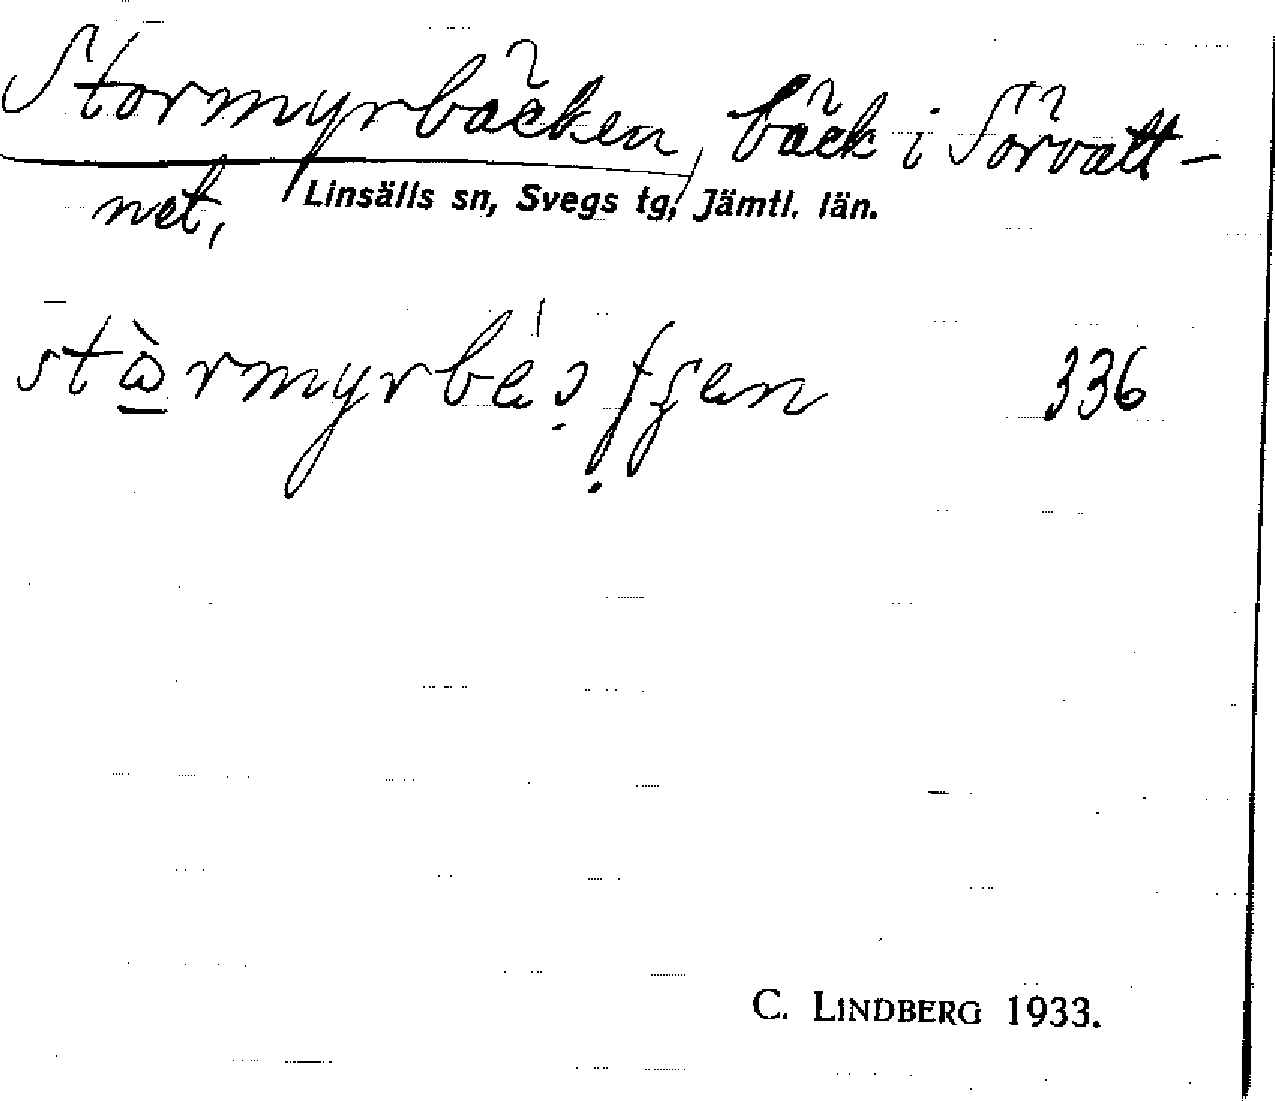 Stormyrbäcken, bäck i Sörvatt-
net,
Linsälls sn, Svegs tg, Jämtl. län.
336
C. LINDBERG 1933.